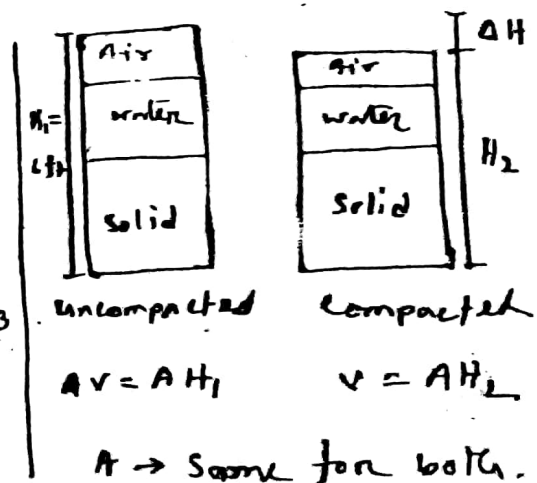 Air
water
solid
H₁=
6ft
air
water
solid
ΔH
H₂
3
uncompacted
compacted
AV = AH₁
V = AH₂
A → same for both.